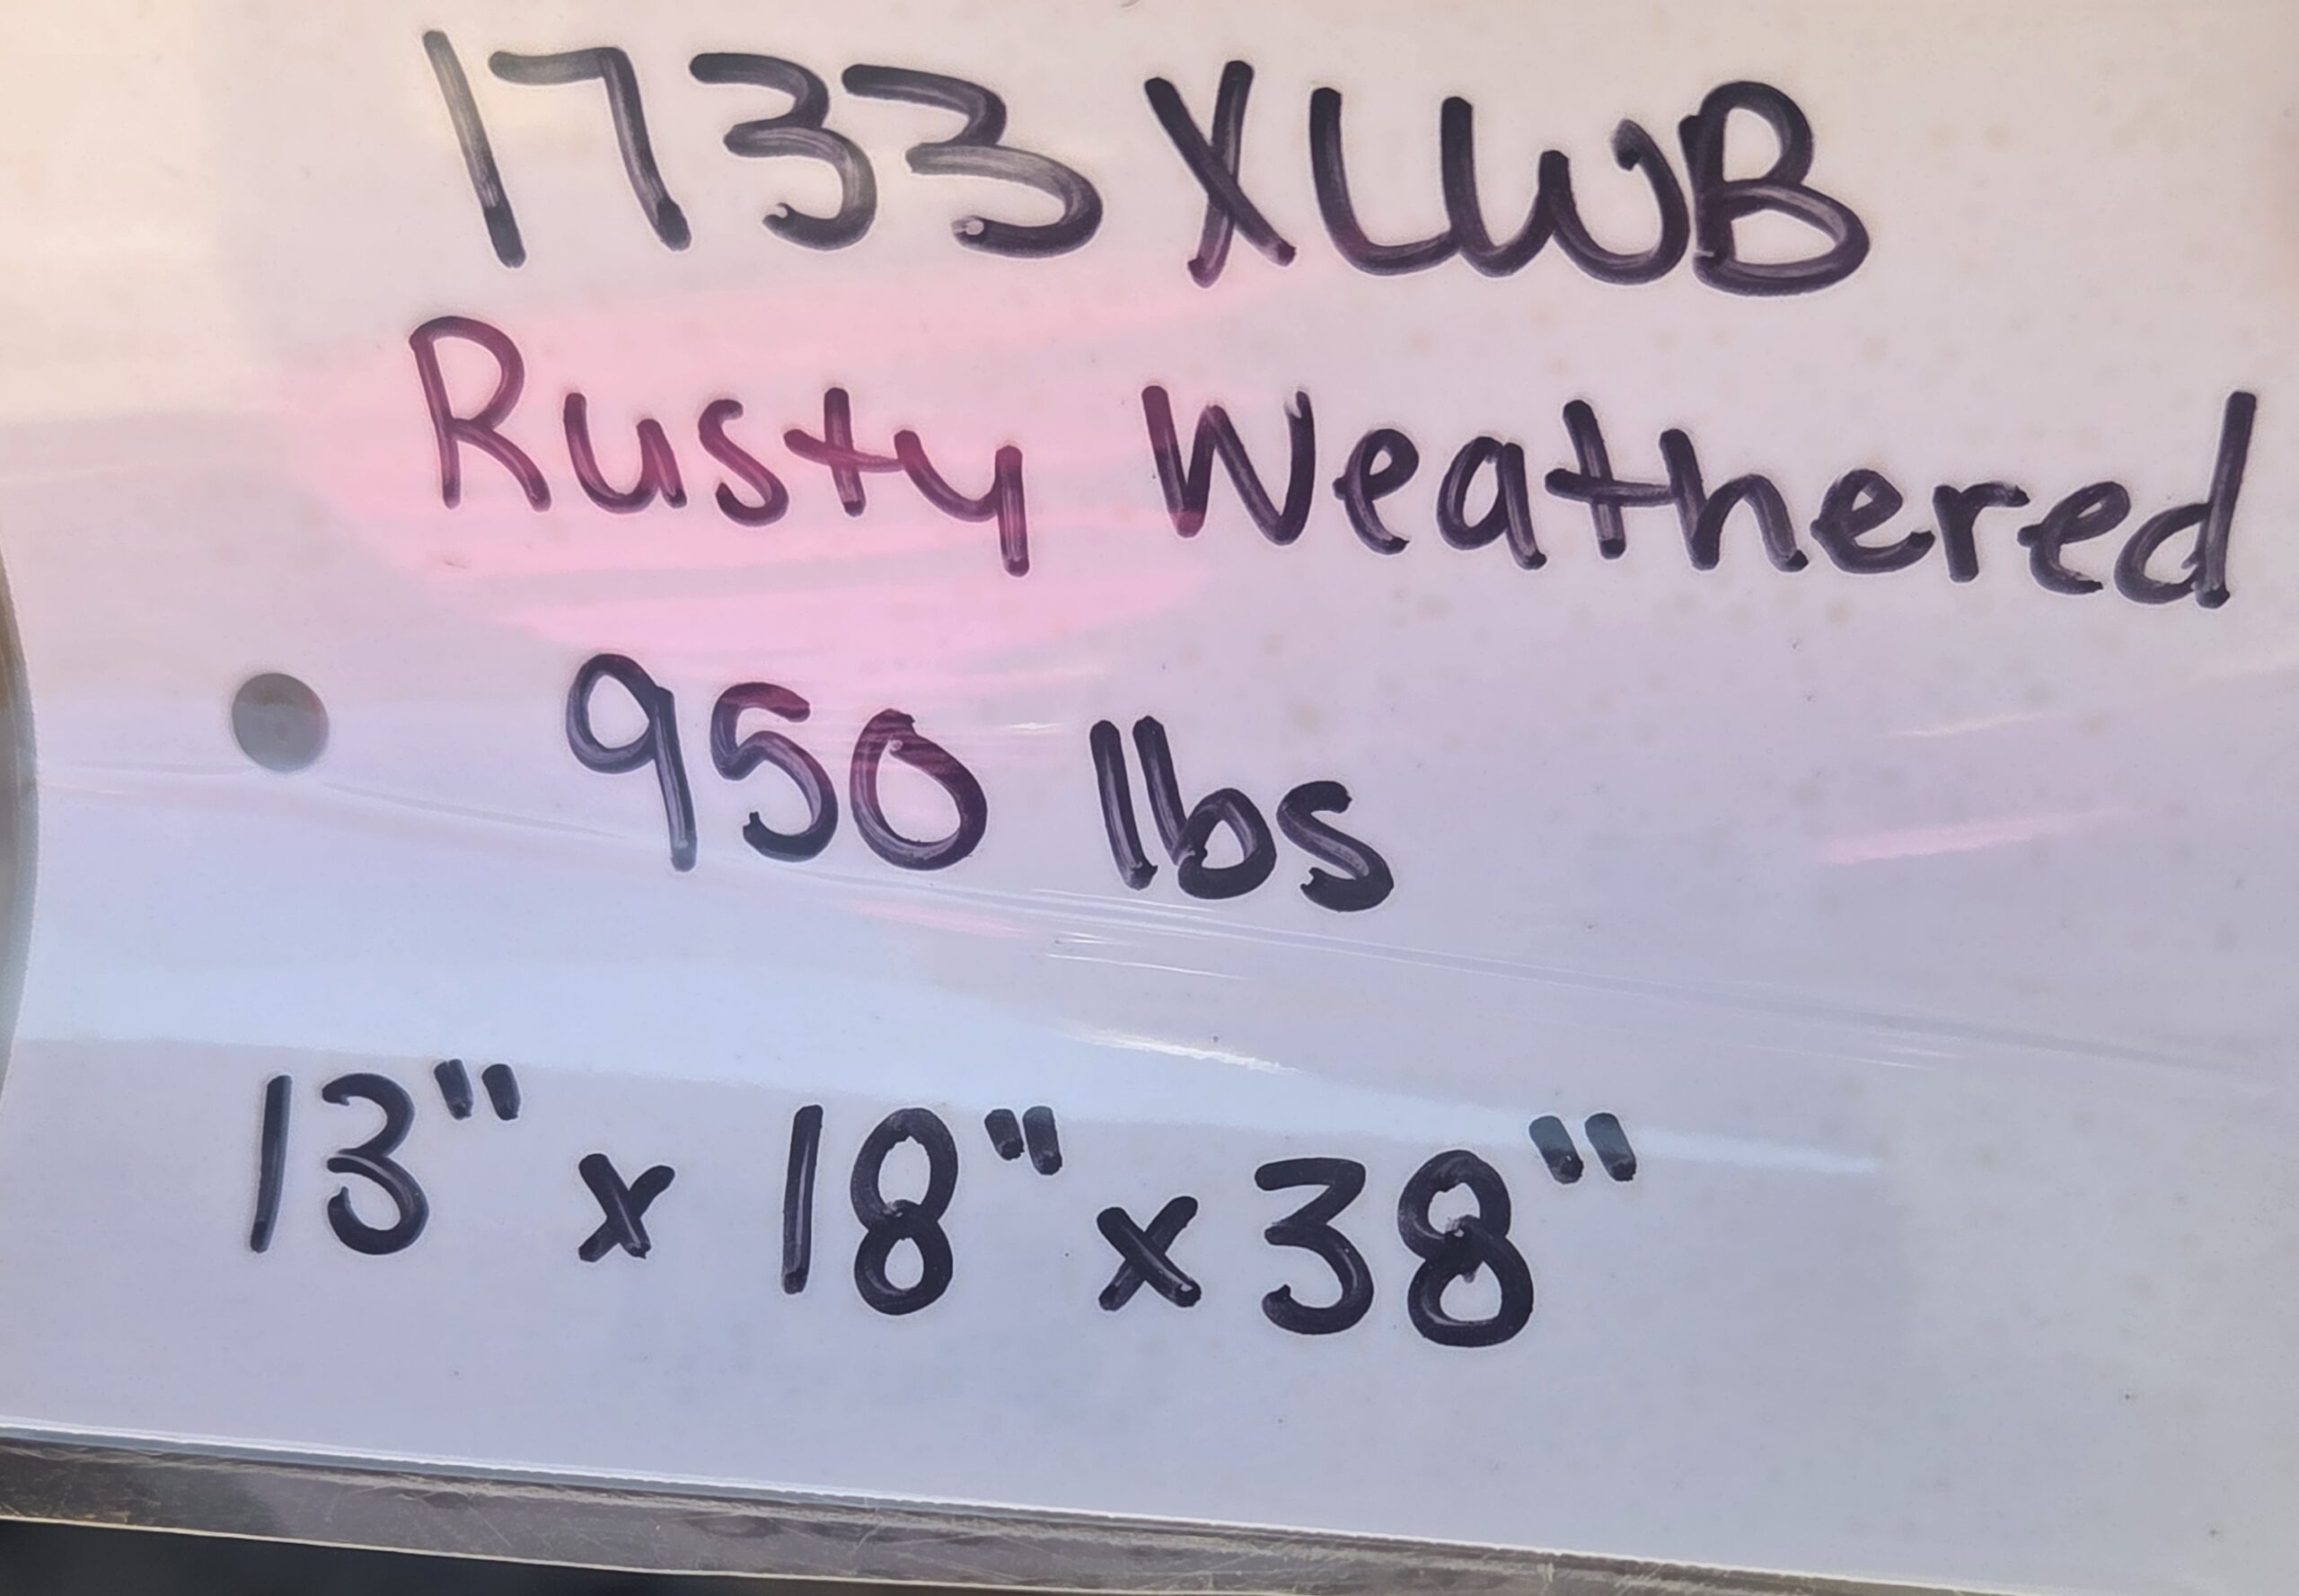 1733 XLWB
Rusty Weathered
950 lbs
13" x 18" x 38"